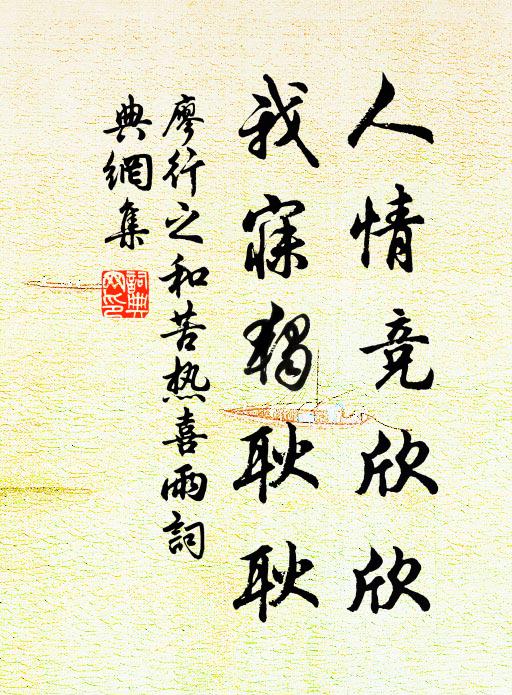 人情竞欣欣
我寐独耿耿
廖行之和苦热喜雨詞
典網集
詞典
网印